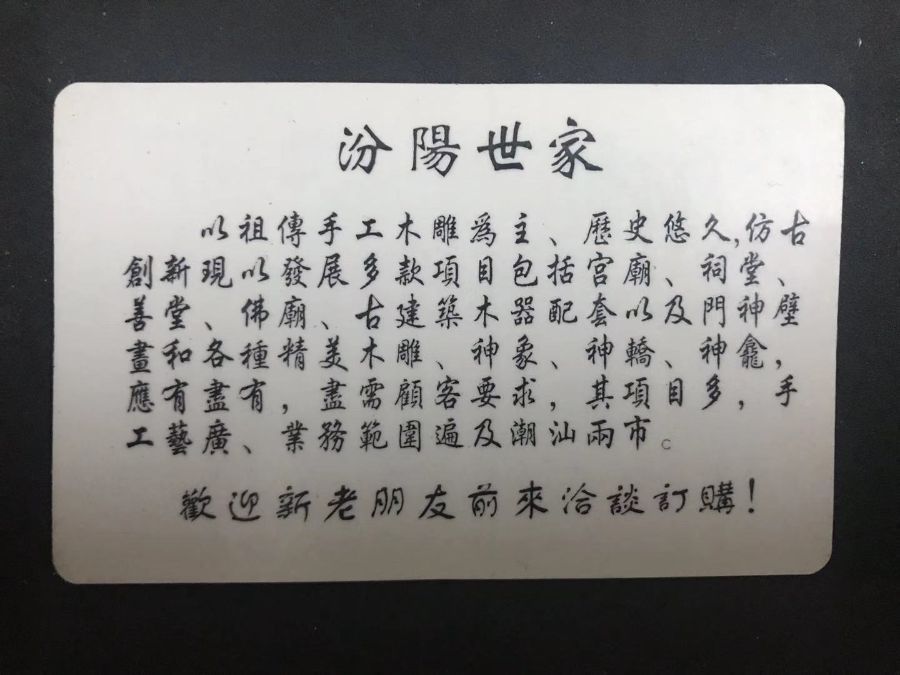 汾陽世家
以祖傳手工木雕為主、歷史悠久,仿古
創新現以發展多款項目包括宮廟、祠堂、
善堂、佛廟、古建築木器配套以及門神壁
畫和各種精美木雕、神象、神轎、神龕,
應有盡有,盡需顧客要求,其項目多,手
工藝廣、業務範圍遍及潮汕兩市。
歡迎新老朋友前來洽談訂購!